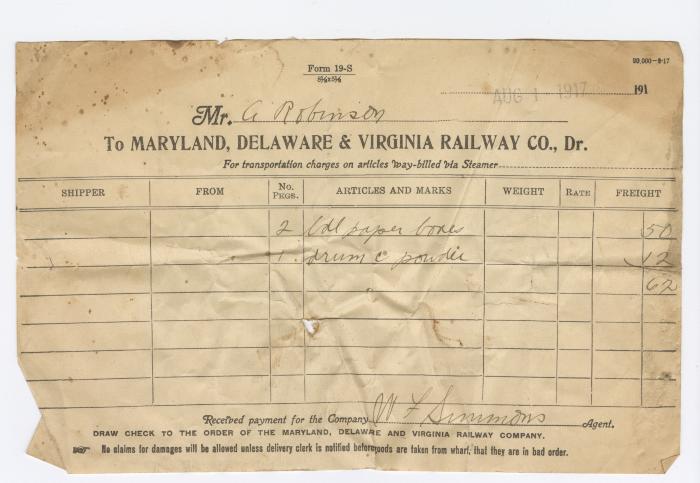 Form 19-S
5½x5½
20,000—8-17
AUG 1 1917 191
Mr. A Robinson
To MARYLAND, DELAWARE & VIRGINIA RAILWAY CO., Dr.
For transportation charges on articles way-billed via Steamer
SHIPPER FROM No. Pkgs. ARTICLES AND MARKS WEIGHT RATE FREIGHT
2 bdl paper boxes 50
1 drum c powder 12
62
Received payment for the Company W F Simmons Agent.
DRAW CHECK TO THE ORDER OF THE MARYLAND, DELAWARE AND VIRGINIA RAILWAY COMPANY.
No claims for damages will be allowed unless delivery clerk is notified before goods are taken from wharf, that they are in bad order.